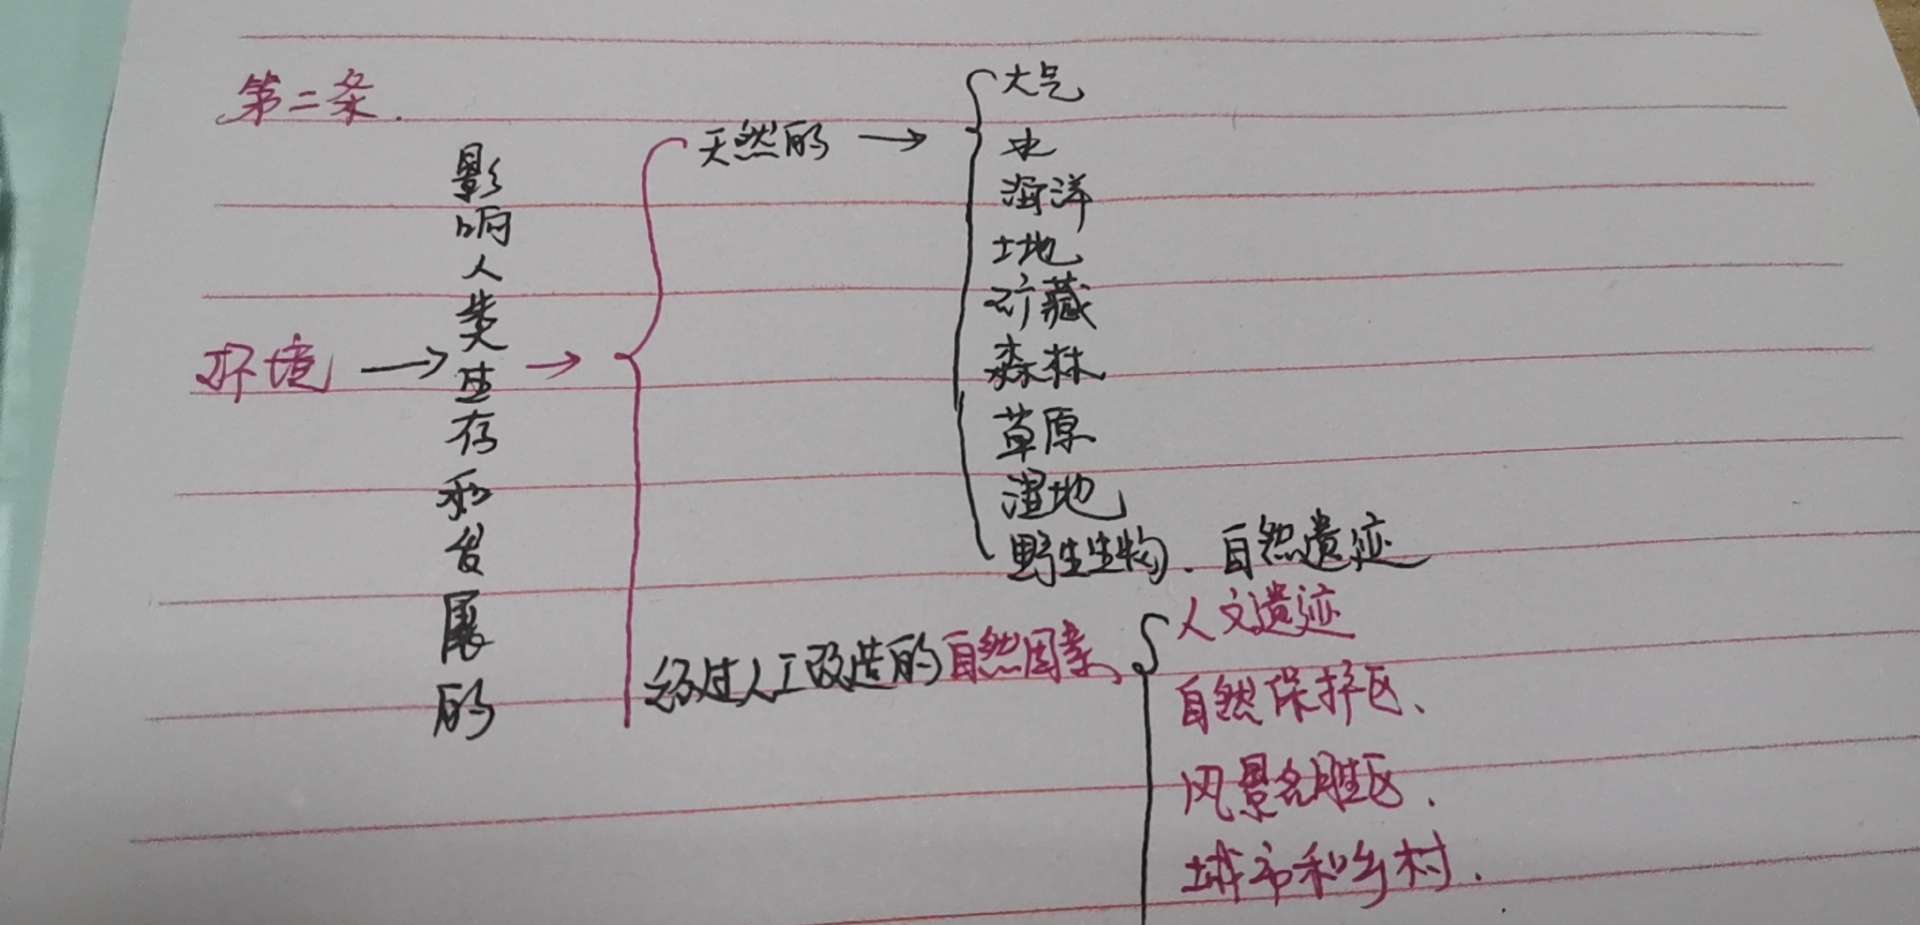 第二条.
环境 → 影响人类生存和发展的 →
天然的 →
大气
水
海洋
土地
矿藏
森林
草原
湿地
野生生物、自然遗迹
经过人工改造的自然因素、
人文遗迹
自然保护区、
风景名胜区、
城市和乡村.